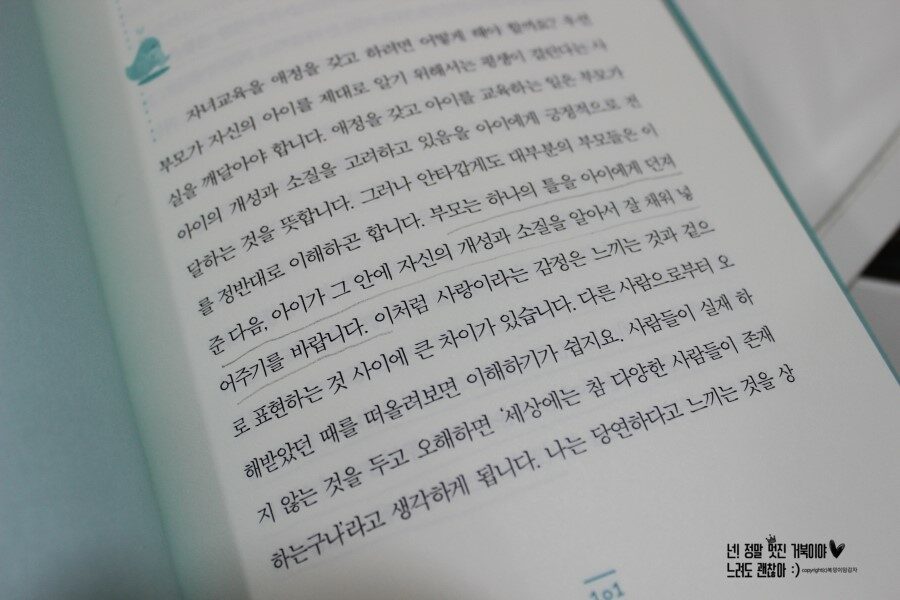 자녀교육을 애정을 갖고 하려면 어떻게 해야 할까요? 우선
부모가 자신의 아이를 제대로 알기 위해서는 평생이 걸린다는 사
실을 깨달아야 합니다. 애정을 갖고 아이를 교육하는 일은 부모가
아이의 개성과 소질을 고려하고 있음을 아이에게 긍정적으로 전
달하는 것을 뜻합니다. 그러나 안타깝게도 대부분의 부모들은 이
를 정반대로 이해하곤 합니다. 부모는 하나의 틀을 아이에게 던져
준 다음, 아이가 그 안에 자신의 개성과 소질을 알아서 잘 채워 넣
어주기를 바랍니다. 이처럼 사랑이라는 감정은 느끼는 것과 겉으
로 표현하는 것 사이에 큰 차이가 있습니다. 다른 사람으로부터 오
해받았던 때를 떠올려보면 이해하기가 쉽지요. 사람들이 실재 하
지 않는 것을 두고 오해하면 '세상에는 참 다양한 사람들이 존재
하는구나'라고 생각하게 됩니다. 나는 당연하다고 느끼는 것을 상
101
넌! 정말 멋진 거북이야
느려도 괜찮아 :)